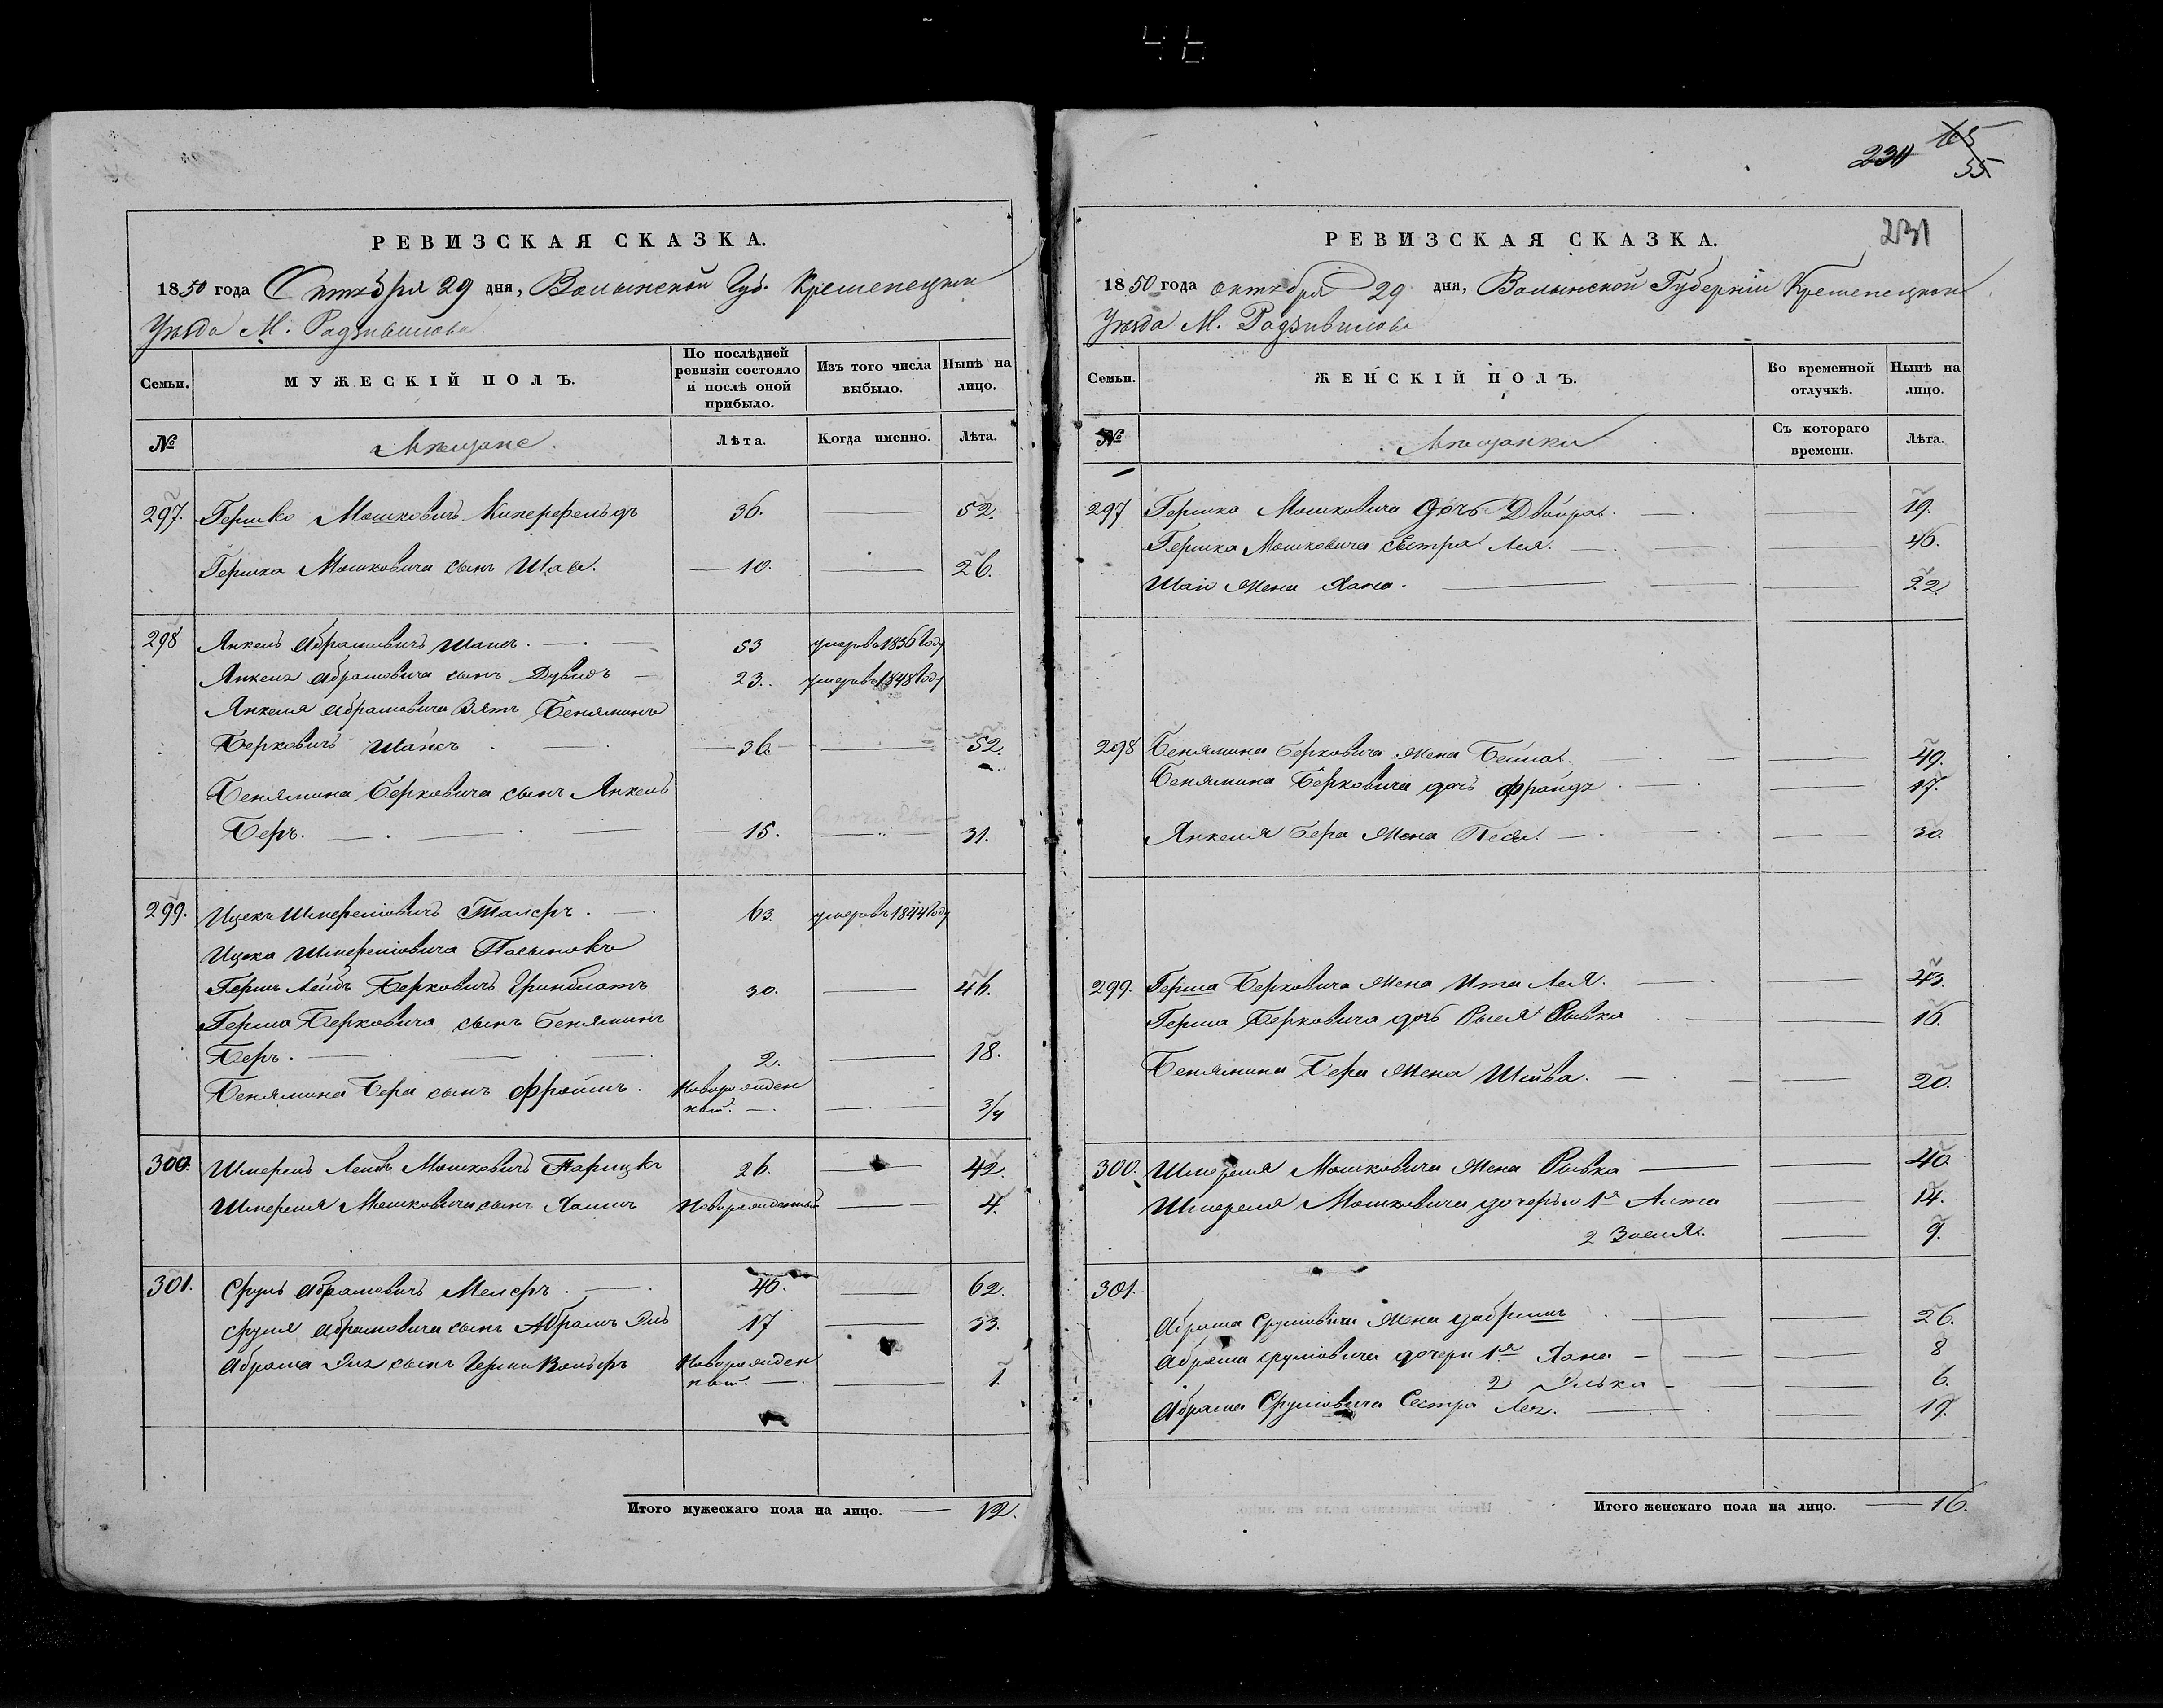 230 165
55
РЕВИЗСКАЯ СКАЗКА.
1850 года Октября 29 дня, Волынской Губ. Кременецкого
Уѣзда М. Радзивилова
Семьи.
МУЖЕСКІЙ ПОЛЪ.
По послѣдней ревизіи состояло и послѣ оной прибыло.
Изъ того числа выбыло.
Нынѣ на лицо.
№ Мѣщане. Лѣта. Когда именно. Лѣта.
297. Гершко Мошковичъ Киперфельдъ 36. 52.
Гершка Мошковича сынъ Шая. 10. 26.
298 Янкель Абрамовичъ Шапсъ. 53 умеръ въ 1836 году
Янкеля Абрамовича сынъ Дувидъ 23. умеръ въ 1848 году
Янкеля Абрамовича Зять Беняминъ
Берковичъ Шапсъ 36. 52.
Бенямина Берковича сынъ Янкель
Беръ. 15. 31.
299. Ицекъ Шмерелювичъ Талеръ. 63. умеръ въ 1844 году
Ицека Шмерелювича Пасынокъ
Гершъ Лейбъ Берковичъ Гринблатъ 30. 46.
Герша Берковича сынъ Беняминъ
Беръ. 2. 18.
Бенямина Бера сынъ Фроимъ. Новорожден
ный. 3/4
300. Шмерель Лейбъ Мошковичъ Парицкъ 26. 42.
Шмереля Мошковича сынъ Хаимъ Новорожденный 4.
301. Сруль Абрамовичъ Мелеръ. 46. 62.
Сруля Абрамовича сынъ Абрамъ Эль 17 33.
Абрама Эля сынъ Герш Вольфъ Новорожден
ный. 1.
Итого мужескаго пола на лицо. 12.
231
РЕВИЗСКАЯ СКАЗКА.
1850 года октября 29 дня, Волынской Губерніи Кременецкого
Уѣзда М. Радзивилова
Семьи.
ЖЕНСКІЙ ПОЛЪ.
Во временной отлучкѣ.
Нынѣ на лицо.
№ Мѣщанки Съ котораго времени. Лѣта.
297 Гершка Мошковича дочь Двойра. 19.
Гершка Мошковича сестра Лея. 46.
Шаи жена Хана. 22.
298 Бенямина Берковича жена Бейла. 49.
Бенямина Берковича дочь Фрайда. 17.
Янкеля Бера жена Песя. 30.
299. Герша Берковича жена Ита Лея. 43.
Герша Берковича дочь Рыся Рывка 16.
Бенямина Бера жена Шива. 20.
300. Шмереля Мошковича жена Рывка 40.
Шмереля Мошковича дочери 1я Анта 14.
2 Зося. 9.
301.
Абрама Срулювича жена 26.
Абрама Срулювича дочери 1я Хана 8
2 Элька 6.
Абрама Срулювича Сестра Лея. 19.
Итого женскаго пола на лицо. 16.